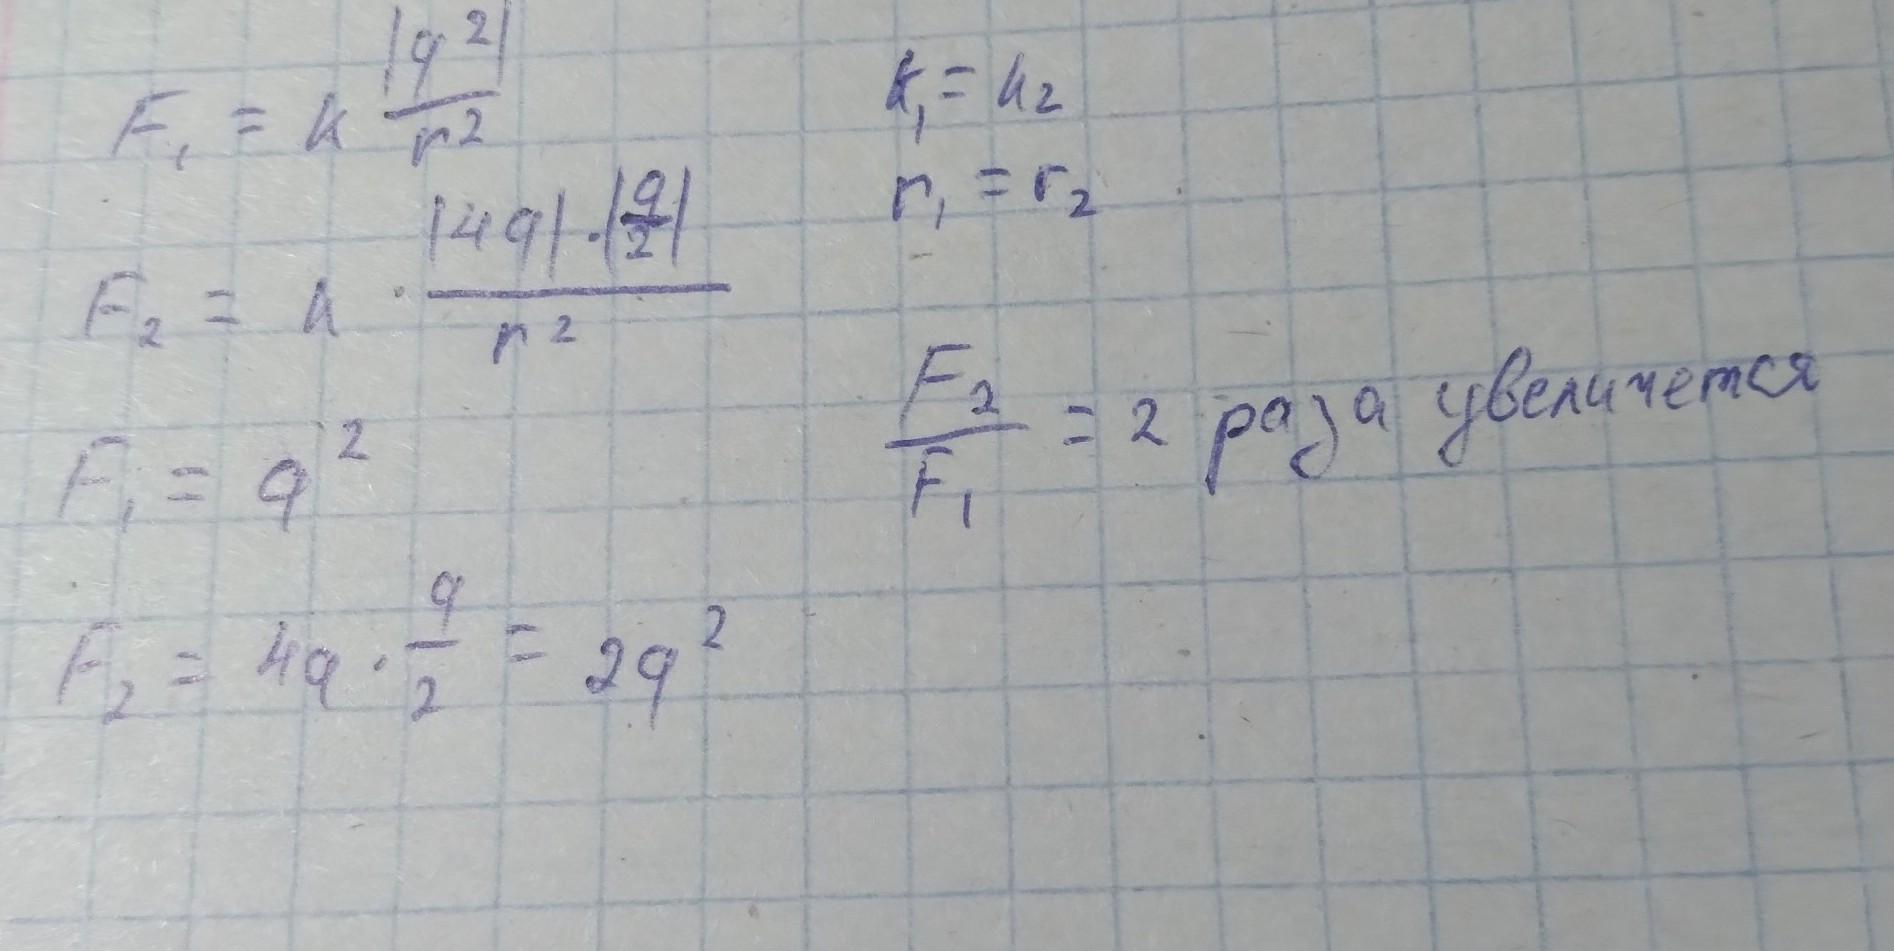 F₁ = k |q²| / r²
k₁ = k₂
r₁ = r₂
F₂ = k · |4q| · |q/2| / r²
F₂ / F₁ = 2 раза увеличется
F₁ = q²
F₂ = 4q · q/2 = 2q²